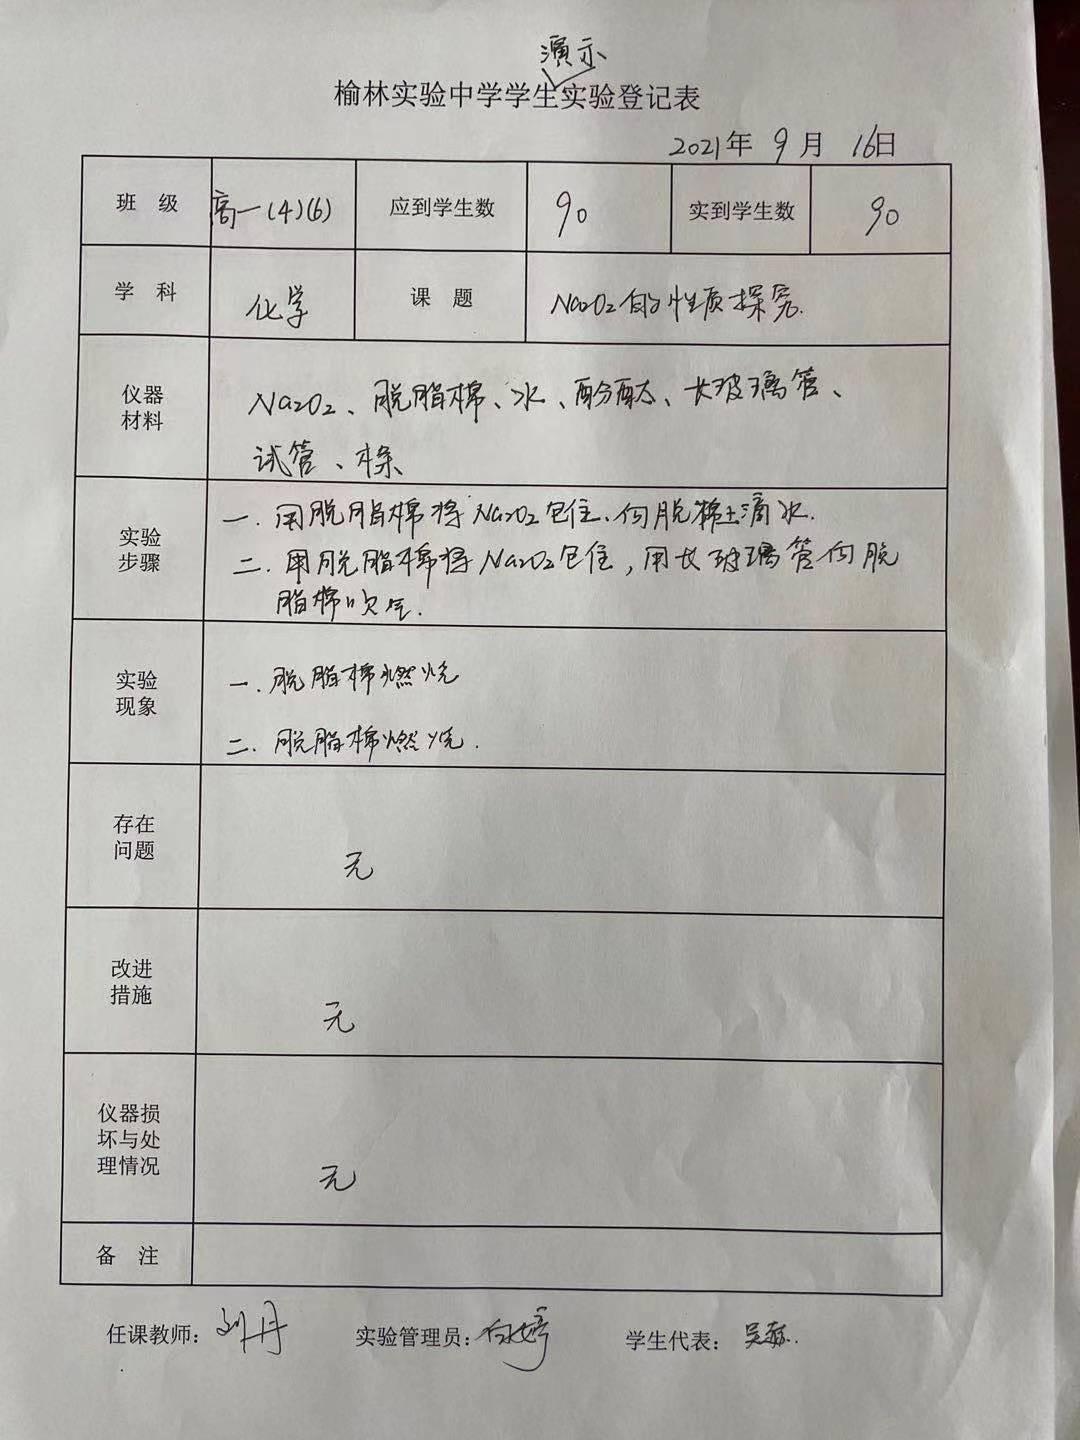 演示
榆林实验中学学生实验登记表
2021年 9月 16日
班 级 高一(4)(6) 应到学生数 90 实到学生数 90
学 科 化学 课 题 Na2O2的性质探究.
仪器
材料
Na2O2、脱脂棉、水、酚酞、长玻璃管、
试管、
实验
步骤
一.用脱脂棉将Na2O2包住.向脱棉上滴水.
二.用脱脂棉将Na2O2包住,用长玻璃管向脱
脂棉吹气.
实验
现象
一.脱脂棉燃烧
二.脱脂棉燃烧.
存在
问题
无
改进
措施
无
仪器损
坏与处
理情况
无
备 注
任课教师:刘丹 实验管理员:白婷 学生代表:吴